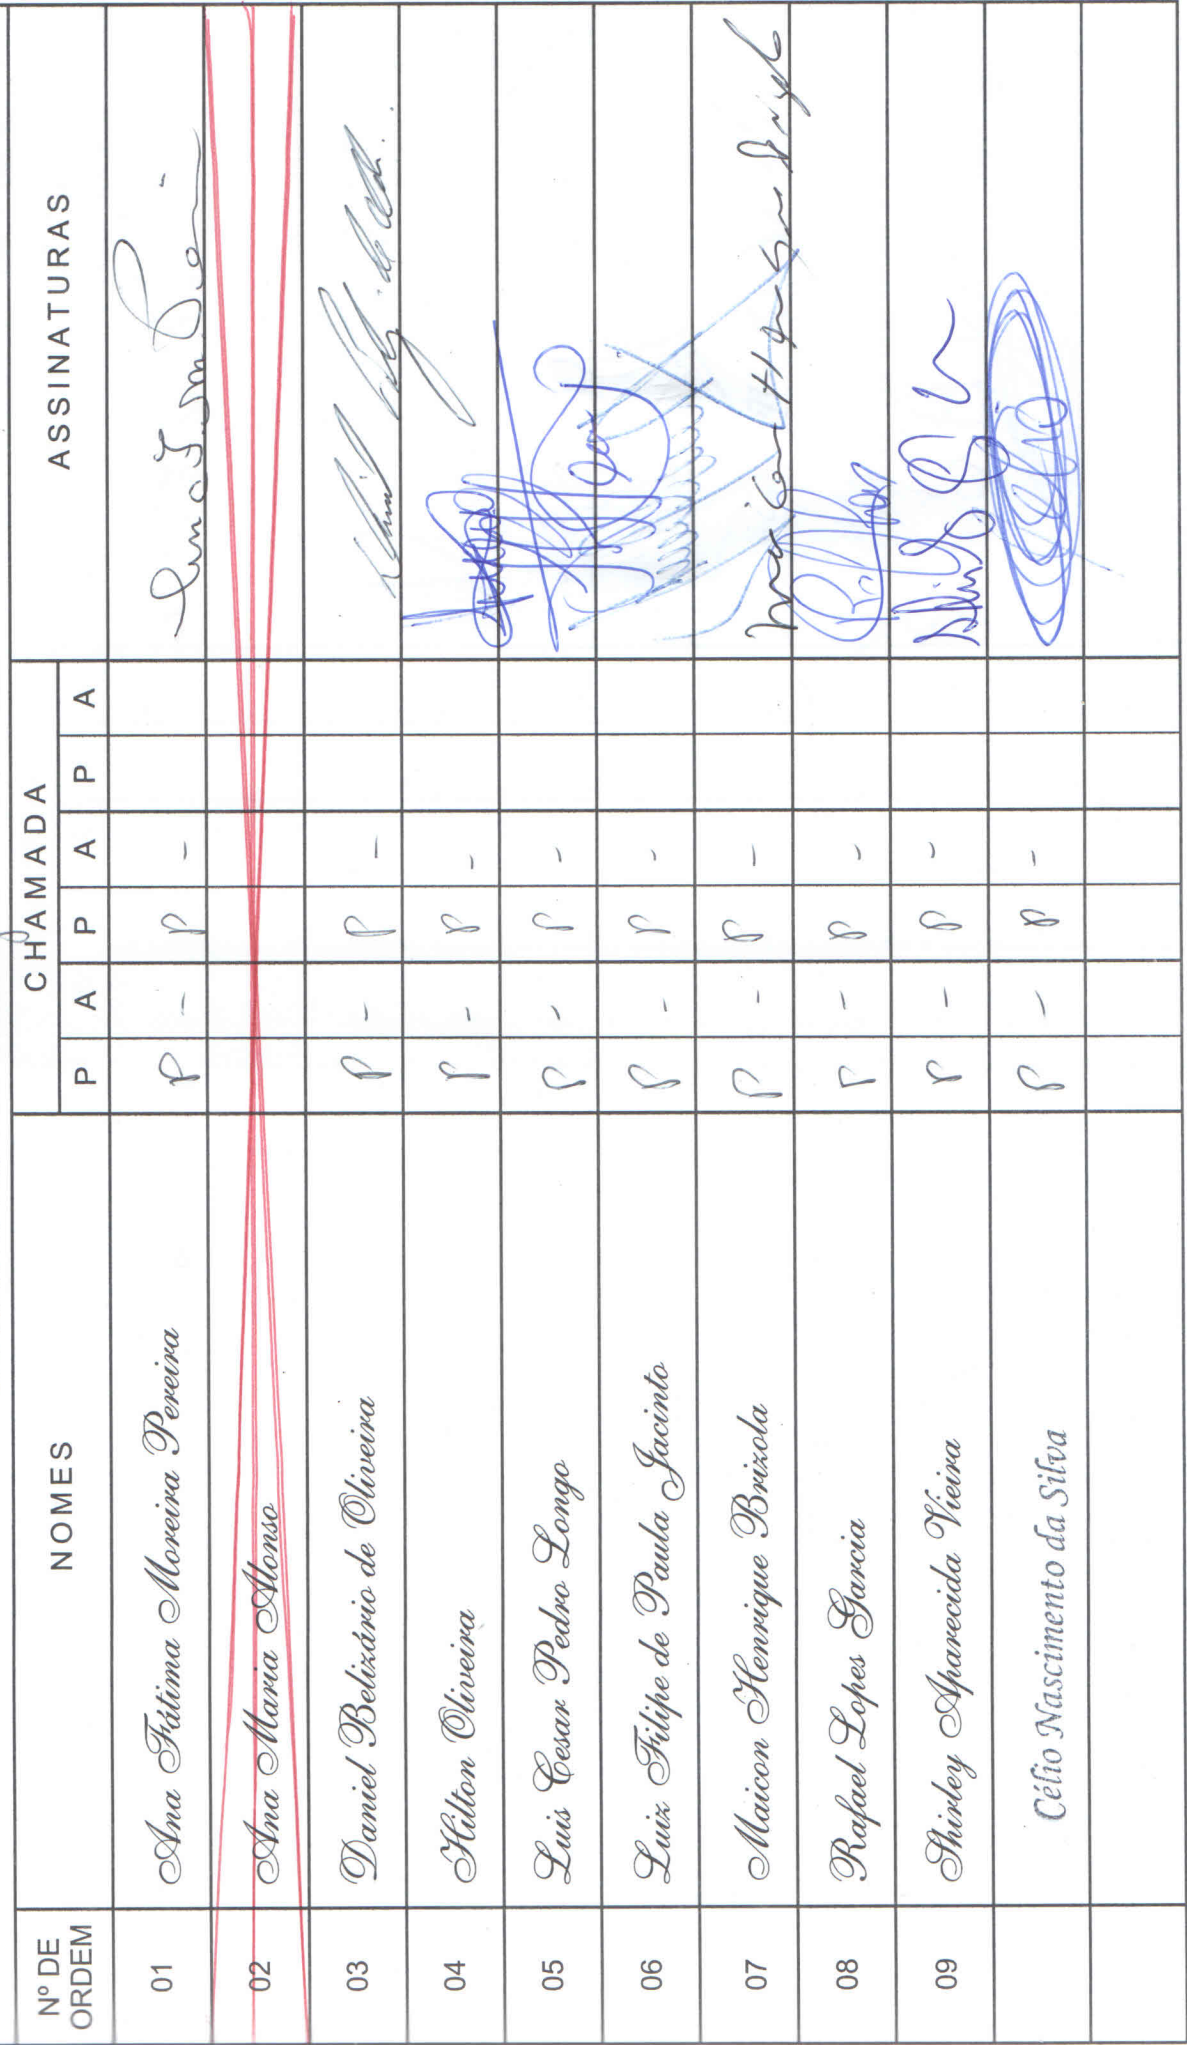 Nº DE ORDEM NOMES CHAMADA ASSINATURAS
P A P A P A
01 Ana Fátima Moreira Pereira P - P -
02 Ana Maria Alonso
03 Daniel Belizário de Oliveira P - P -
04 Hilton Oliveira P - P -
05 Luis Cesar Pedro Longo P - P -
06 Luiz Filipe de Paula Jacinto P - P -
07 Maicon Henrique Brizola P - P -
08 Rafael Lopes Garcia P - P -
09 Shirley Aparecida Vieira P - P -
Célio Nascimento da Silva P - P - Celio